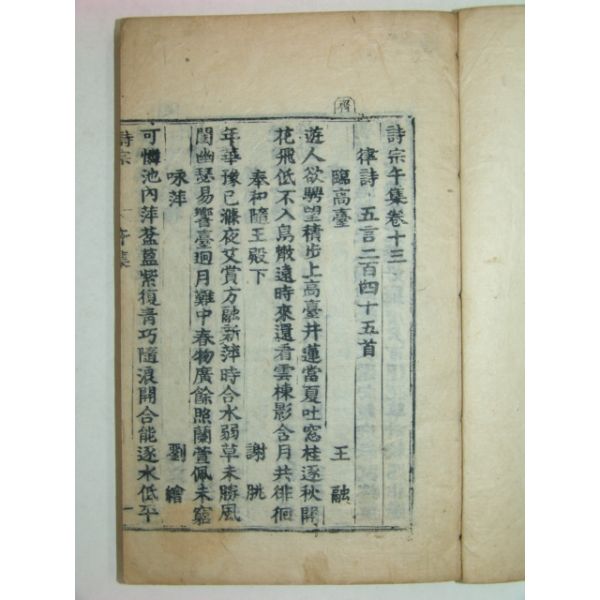 詩宗午集卷十三
律詩 五言二百四十五首
臨高臺 王融
遊人欲騁望積步上高臺井蓮當夏吐窓桂逐秋開
花飛低不入鳥散遠時來還看雲棟影含月共徘徊
奉和隨王殿下 謝朓
年華豫已滌夜艾賞方融新萍時合水弱草未勝風
閨幽瑟易響臺迴月難中春物廣餘照蘭萱佩未窮
咏萍 劉繪
可憐池內萍葐蒀紫復青巧隨浪開合能逐水低平
詩宗 午集 一